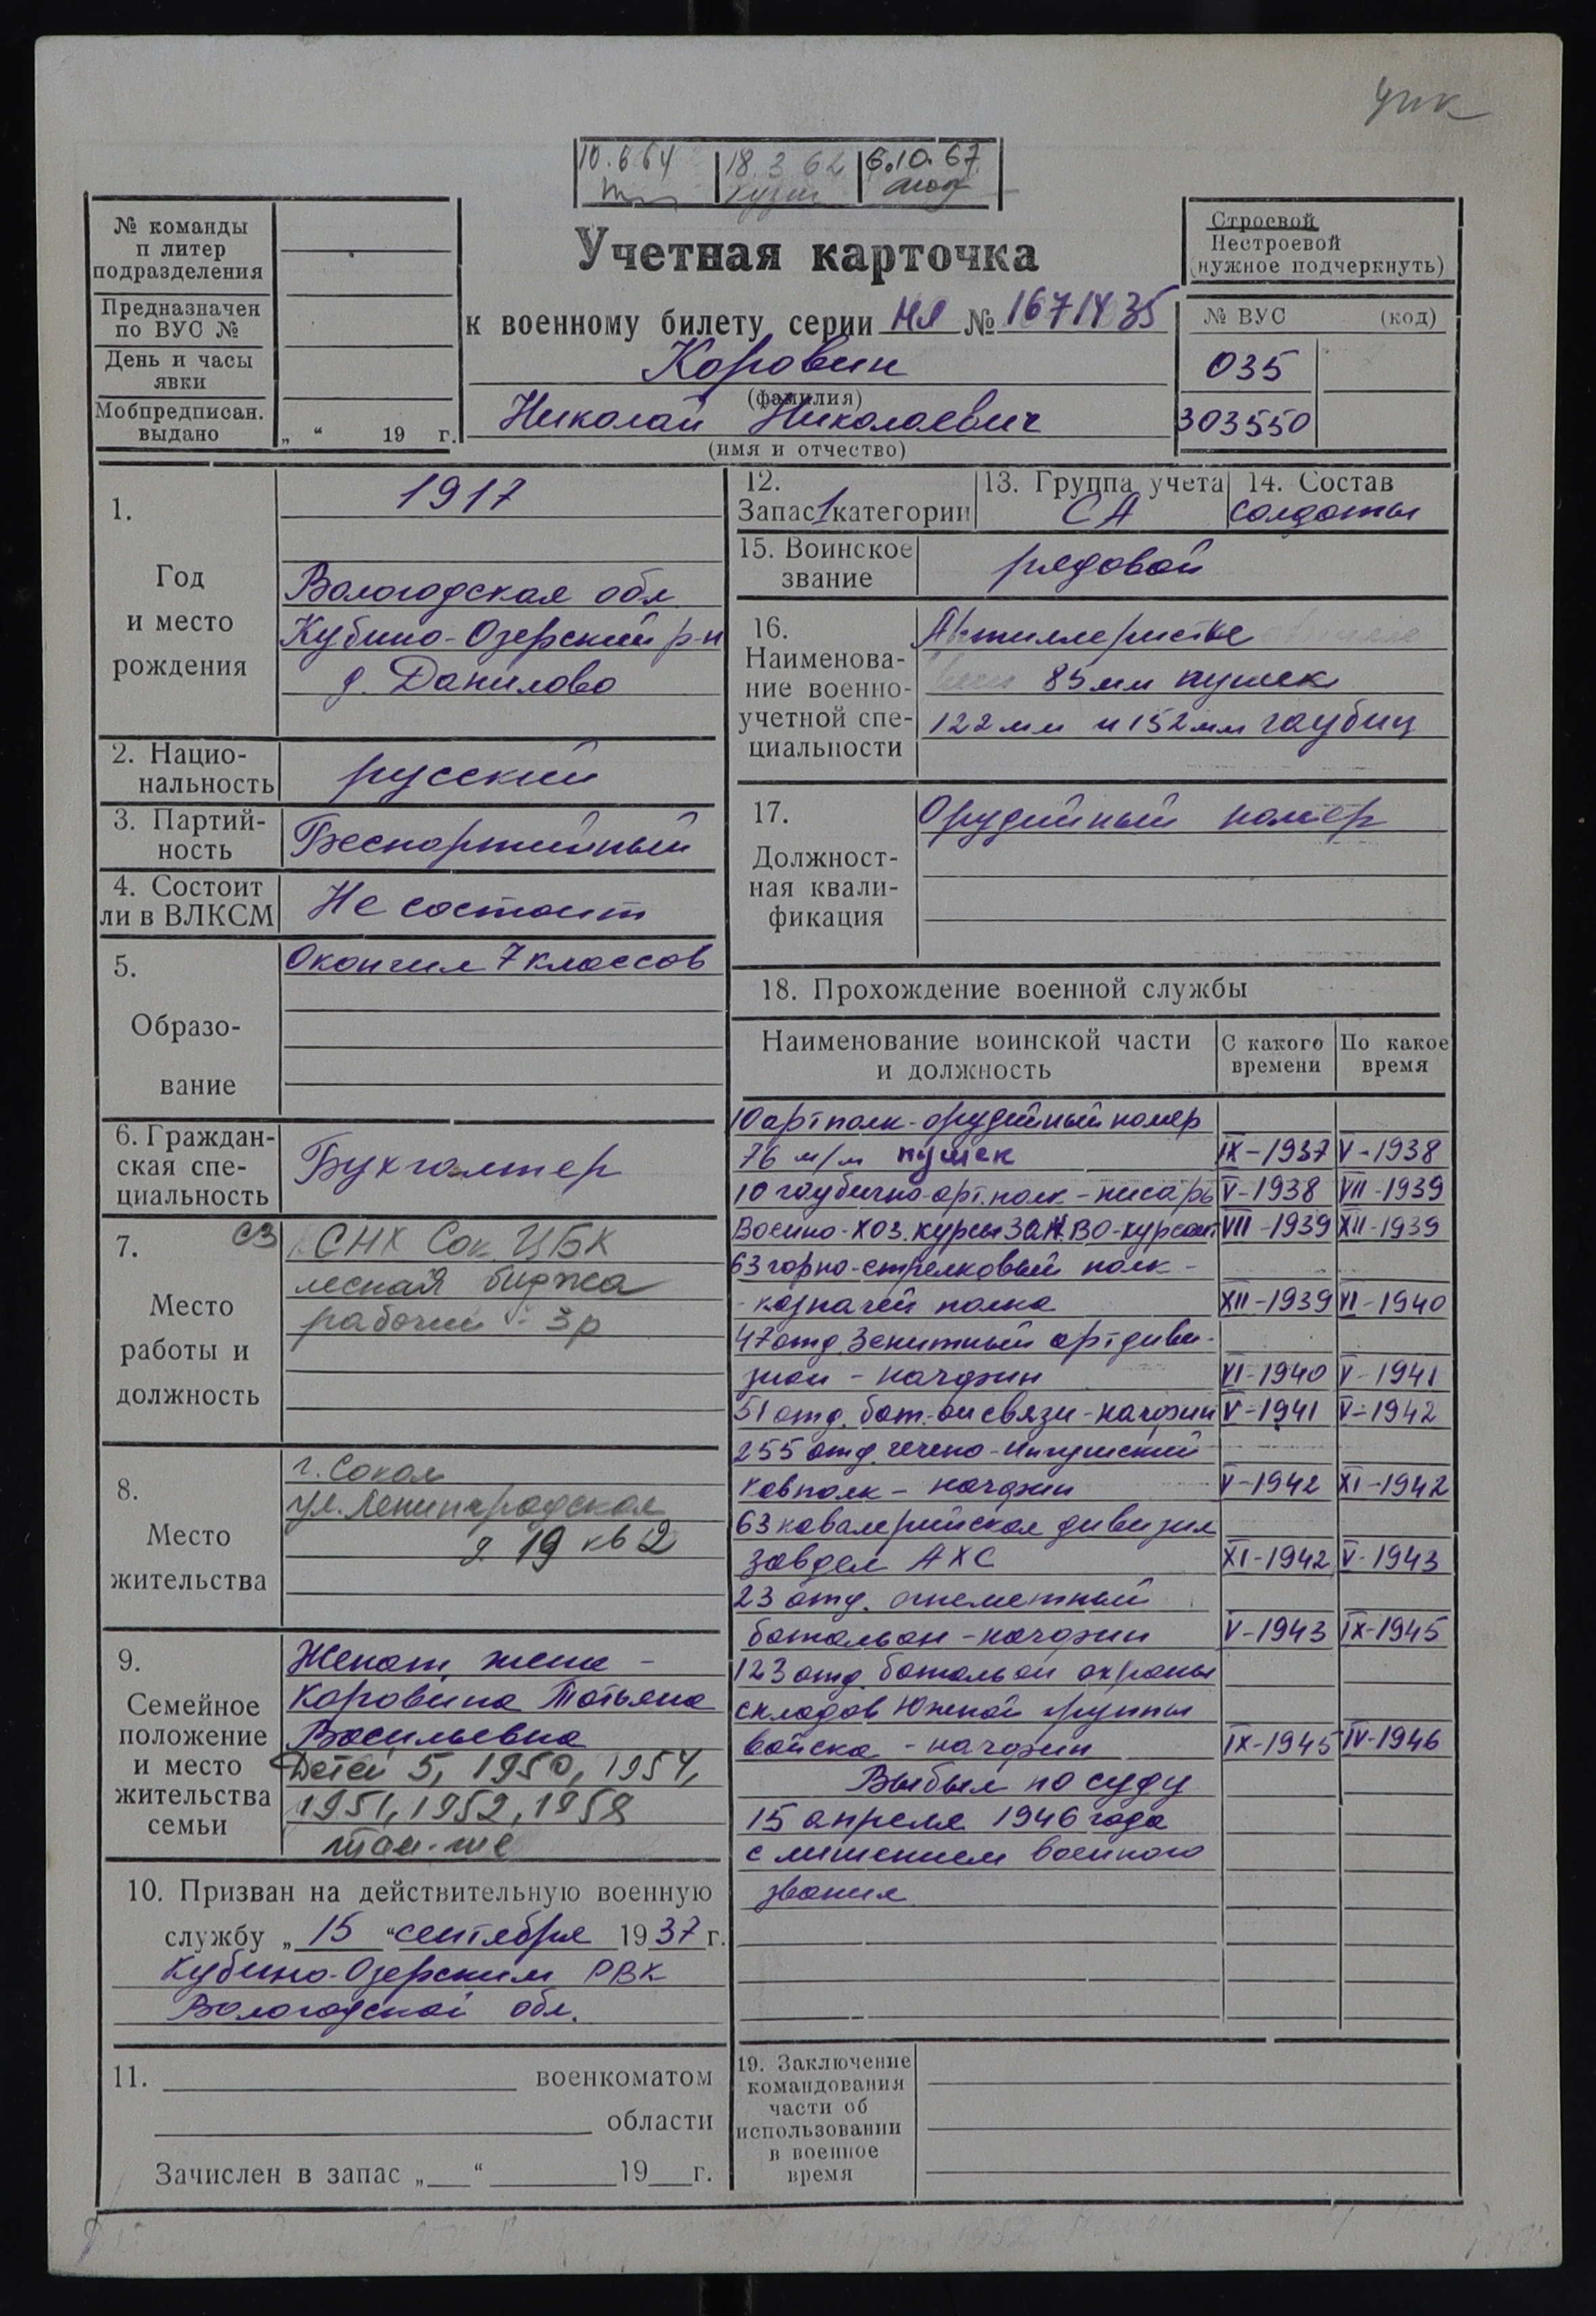 упк
10.6 64 18.3 62 6.10.67
№ команды
п литер
подразделения
Предназначен
по ВУС №
День и часы
явки
Мобпредписан.
выдано „ “ 19 г.
Учетная карточка
к военному билету серии НЛ № 1671435
Коровин
(фамилия)
Николай Николаевич
(имя и отчество)
Строевой
Нестроевой
(нужное подчеркнуть)
№ ВУС (код)
035
303550
1.
Год
и место
рождения
1917
Вологодская обл
Кубино-Озерский р-н
д. Данилово
2. Нацио-
нальность
русский
3. Партий-
ность
Беспартийный
4. Состоит
ли в ВЛКСМ
Не состоит
5.
Образо-
вание
Окончил 7 классов
6. Граждан-
ская спе-
циальность
Бухгалтер
7.
Место
работы и
должность
СНХ Сок ЦБК
лесная биржа
рабочий - 3р
8.
Место
жительства
г. Сокол
ул. Ленинградская
д. 19 кв 2
9.
Семейное
положение
и место
жительства
семьи
Женат, жена -
Коровина Татьяна
Васильевна
Детей 5, 1950, 1954,
1951, 1952, 1958
там-же
10. Призван на действительную военную
службу „ 15 “ сентября 1937 г.
Кубино-Озерским РВК
Вологодской обл.
11. военкоматом
области
Зачислен в запас „ “ 19 г.
12.
Запас 1 категории
13. Группа учета
СА
14. Состав
солдаты
15. Воинское
звание
рядовой
16.
Наименова-
ние военно-
учетной спе-
циальности
Артиллеристы
85 мм пушек
122 мм и 152 мм гаубиц
17.
Должност-
ная квали-
фикация
Орудийный номер
18. Прохождение военной службы
Наименование воинской части
и должность
С какого
времени
По какое
время
10 артполк - орудийный номер
76 м/м пушек IX-1937 V-1938
10 гаубично-арт. полк - писарь V-1938 VII-1939
Военно-хоз. курсы ЗАК.ВО-курсант VII-1939 XII-1939
63 горно-стрелковый полк -
- казначей полка XII-1939 VI-1940
47 отд. Зенитный артдиви-
зион - начфин VI-1940 V-1941
51 отд. бат-он связи - начфин V-1941 V-1942
255 отд. чечено-ингушский
кавполк - начфин V-1942 XI-1942
63 кавалерийская дивизия
завдел АХС XI-1942 V-1943
23 отд. огнеметный
батальон - начфин V-1943 IX-1945
123 отд. батальон охраны
складов Южной группы
войска - начфин IX-1945 IV-1946
Выбыл по суду
15 апреля 1946 года
с лишением военного
звания
19. Заключение
командования
части об
использовании
в военное
время